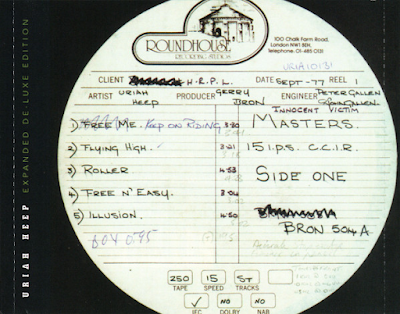 URIAH HEEP EXPANDED DE-LUXE EDITION
ROUNDHOUSE
RECORDING STUDIOS
100 Chalk Farm Road,
London NW1 8EH,
Telephone: 01-485 0131
URIA 10131
CLIENT H.R.P.L. DATE SEPT-77 REEL 1
ARTIST URIAH HEEP PRODUCER GERRY BRON ENGINEER PETER GALLEN
INNOCENT VICTIM
1) FREE ME. KEEP ON RIDING 3:30
MASTERS.
2) FLYING HIGH. 3:21
15 I.P.S. C.C.I.R.
3) ROLLER 4:53
SIDE ONE
4) FREE N' EASY. 3:04
5) ILLUSION. 4:50
BRON 504 A
250 15 ST
TAPE SPEED TRACKS
✓ NO NO
IEC DOLBY NAB